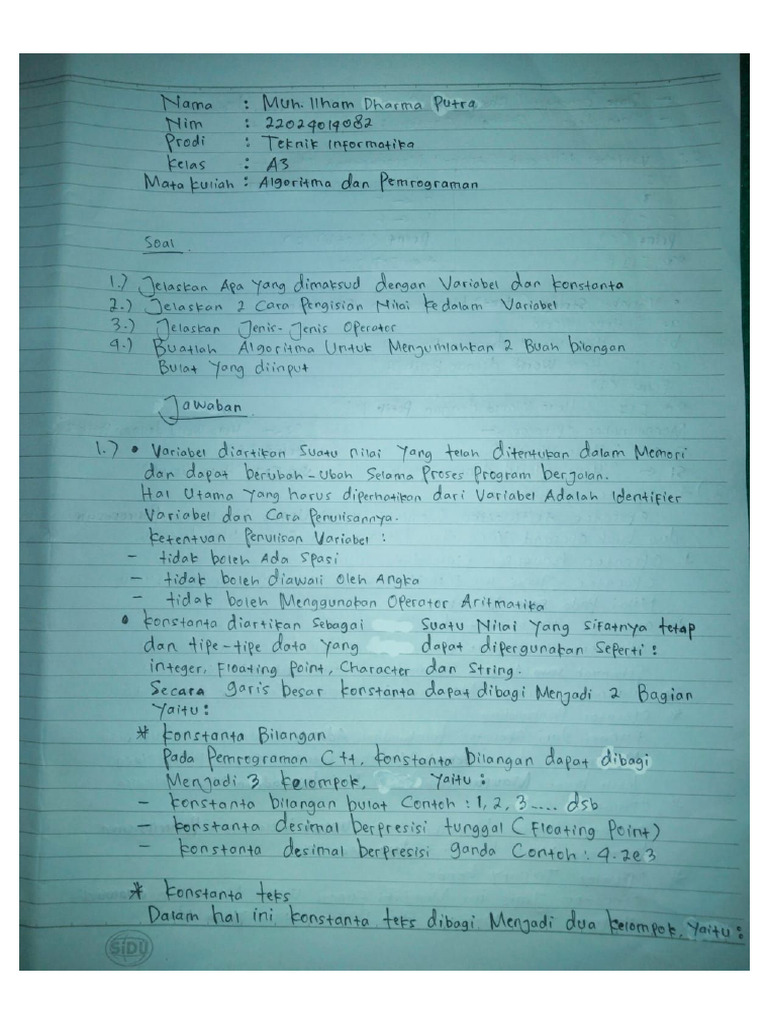 Nama : Muh. Ilham Dharma Putra
Nim : 22024014082
Prodi : Teknik Informatika
Kelas : A3
Mata kuliah : Algoritma dan Pemrograman
Soal.
1.) Jelaskan Apa Yang dimaksud dengan Variabel dan Konstanta
2.) Jelaskan 2 Cara Pengisian Nilai Kedalam Variabel
3.) Jelaskan Jenis-Jenis Operator
4.) Buatlah Algoritma Untuk Mengumlahkan 2 Buah bilangan
Bulat Yang diinput
Jawaban
1.) • Variabel diartikan Suatu nilai Yang telah ditentukan dalam Memori
dan dapat berubah-Ubah Selama Proses Program berjalan.
Hal Utama Yang harus diperhatikan dari Variabel Adalah Identifier
Variabel dan Cara Penulisannya.
Ketentuan Penulisan Variabel :
- tidak boleh Ada Spasi
- tidak boleh diawali Oleh Angka
- tidak boleh Menggunakan Operator Aritmatika
• Konstanta diartikan Sebagai Suatu Nilai Yang Sifatnya tetap
dan tipe-tipe data Yang dapat dipergunakan Seperti :
integer, Floating point, Character dan String.
Secara garis besar Konstanta dapat dibagi Menjadi 2 Bagian
Yaitu :
* Konstanta Bilangan
Pada Pemrograman C++, Konstanta bilangan dapat dibagi
Menjadi 3 Kelompok, Yaitu :
- Konstanta bilangan bulat Contoh : 1, 2, 3 .... dsb
- Konstanta desimal berpresisi tunggal (Floating Point)
- Konstanta desimal berpresisi ganda Contoh : 4.2e3
* Konstanta teks
Dalam hal ini, Konstanta teks dibagi Menjadi dua Kelompok, Yaitu :
SiDU